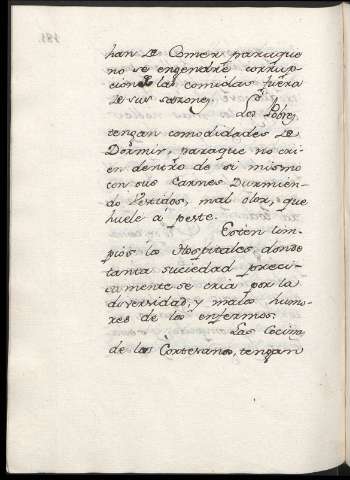 181.
han de Comer, paraque
no se engendre corrup-
cion de las comidas fuera
de sus sazones.
Los Pobres,
tengan comodidades de
Dormir, paraque no cri-
en dentro de si mismo
con sus Carnes Durmien-
do Vestidos, mal olor, que
huele a peste.
Esten lim-
pios lo Hospitales, donde
tanta suciedad preci-
samente se cria por la
diversidad, y malos humo-
res de los enfermos.
Las Cocinas
de las Cortesanos, tengan